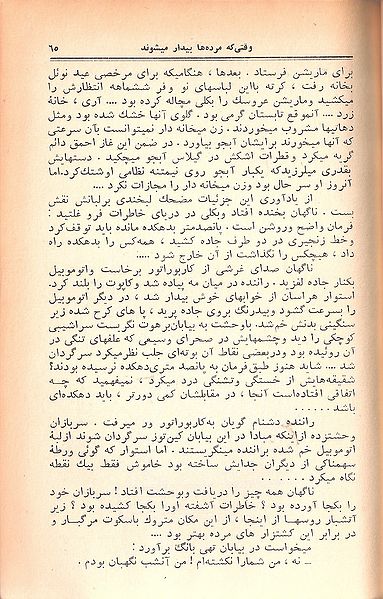 وقتی‌که مرده‌ها بیدار میشوند
٦٥
برای ماریشن فرستاد . بعدها ، هنگامیکه برای مرخصی عید نوئل
بخانه رفت ، کرته بااین لباسهای نو وفر ششماهه انتظارش را
میکشید وماریشن عروسك را بکلی مچاله کرده بود .... آری ، خانهٔ
زرد .... آنموقع تابستان گرمی بود . گلوی آنها خشك شده بود ومثل
دهاتیها مشروب میخوردند. زن میخانه دار نمیتوانست بآن سرعتی
که آنها میخورند برایشان آبجو بیاورد . در ضمن این غاز احمق دائم
گریه میکرد و قطرات اشکش در گیلاس آبجو میچکید . دستهایش
بقدری میلرزیدکه یکبار آبجو روی نیمتنه نظامی اوشتك‌کرد.اما
آنروز او سر حال بود وزن میخانه دار را مجازات نکرد ....
از یادآوری این جزئیات مضحك لبخندی برلبانش نقش
بست . ناگهان بخنده افتاد وبکلی در دریای خاطرات فرو غلتید :
فرمان واضح وروشن است . پانصدمتر بدهکده مانده باید توقف‌کرد
وخط زنجیری در دو طرف جاده کشید ، همه‌کس را بدهکده راه
داد ، هیچکس را نگذاشت از آن خارج شود .....
ناگهان صدای غرشی از کاربوراتور برخاست واتوموبیل
بکنار جاده لغزید . راننده در میان مه پیاده شد وکاپوت را بلند کرد.
استوار هراسان از خوابهای خوش بیدار شد ، در دیگر اتوموبیل
را بسرعت گشود وبیدرنگ بروی جاده پرید ، پا های کرخ شده زیر
سنگینی بدنش خم‌شد. باوحشت به بیابان‌برهوت نگریست سراشیبی
کوچکی را دید وچشمهایش در صحرای وسیعی که علفهای تنگی در
آن روئیده بود ودربعضی نقاط آن بوته‌ای جلب نظرمیکرد سرگردان
شد .... شاید هنوز طبق‌فرمان به پانصد متری‌دهکده نرسیده بودند؟
شقیقه‌هایش از خستگی وتشنگی درد میکرد ، نمیفهمید که چه
اتفاقی افتاده‌است آنجا ، در مقابلشان کمی دورتر ، باید دهکده‌ای
باشد ......
راننده دشنام گویان به‌کاربوراتور ور میرفت . سربازان
وحشتزده ازاینکه مبادا در این بیابان کین‌توز سرگردان شوند ازلبهٔ
اتوموبیل خم شده براننده مینگریستند . اما استوار که گوئی ورطهٔ
سهمناکی از دیگران جدایش ساخته بود خاموش فقط بیك نقطه
نگاه میکرد ........
ناگهان همه چیز را دریافت وبوحشت افتاد! سربازان خود
را بکجا آورده بود ؟ خاطرات آشفته اورا بکجا کشیده بود ؟ زیر
آتشبار روسها از اینجا ، از این مکان متروك باسکوت مرگبار و
در برابر این کشتزار های مرده بهتر بود ....
میخواست در بیابان تهی بانگ برآورد :
ـ نه ، من شمارا نکشته‌ام ! من آنشب نگهبان بودم .